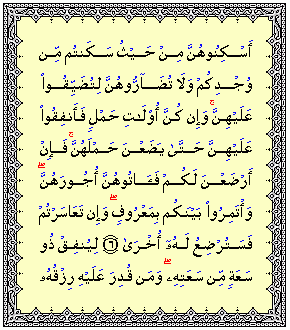 أَسْكِنُوهُنَّ مِنْ حَيْثُ سَكَنتُم مِّن
وُجْدِكُمْ وَلَا تُضَآرُّوهُنَّ لِتُضَيِّقُوا۟
عَلَيْهِنَّ ۚ وَإِن كُنَّ أُو۟لَٰتِ حَمْلٍ فَأَنفِقُوا۟
عَلَيْهِنَّ حَتَّىٰ يَضَعْنَ حَمْلَهُنَّ ۚ فَإِنْ
أَرْضَعْنَ لَكُمْ فَـَٔاتُوهُنَّ أُجُورَهُنَّ ۖ
وَأْتَمِرُوا۟ بَيْنَكُم بِمَعْرُوفٍ ۖ وَإِن تَعَاسَرْتُمْ
فَسَتُرْضِعُ لَهُۥٓ أُخْرَىٰ ۝٦ لِيُنفِقْ ذُو
سَعَةٍ مِّن سَعَتِهِۦ ۖ وَمَن قُدِرَ عَلَيْهِ رِزْقُهُۥ